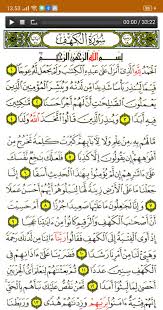 13.53
00:00 / 33:22
سُورَةُ الْكَهْفِ
بِسْمِ اللَّهِ الرَّحْمَنِ الرَّحِيمِ
الْحَمْدُ لِلَّهِ الَّذِي أَنزَلَ عَلَى عَبْدِهِ الْكِتَابَ وَلَمْ يَجْعَل لَّهُ عِوَجَا ١
قَيِّمًا لِّيُنذِرَ بَأْسًا شَدِيدًا مِّن لَّدُنْهُ وَيُبَشِّرَ الْمُؤْمِنِينَ الَّذِينَ
يَعْمَلُونَ الصَّالِحَاتِ أَنَّ لَهُمْ أَجْرًا حَسَنًا ٢ مَّاكِثِينَ فِيهِ
أَبَدًا ٣ وَيُنذِرَ الَّذِينَ قَالُوا اتَّخَذَ اللَّهُ وَلَدًا ٤
مَّا لَهُم بِهِ مِنْ عِلْمٍ وَلَا لِآبَائِهِمْ كَبُرَتْ كَلِمَةً تَخْرُجُ مِنْ
أَفْوَاهِهِمْ إِن يَقُولُونَ إِلَّا كَذِبًا ٥ فَلَعَلَّكَ بَاخِعٌ نَّفْسَكَ
عَلَى آثَارِهِمْ إِن لَّمْ يُؤْمِنُوا بِهَذَا الْحَدِيثِ أَسَفًا ٦ إِنَّا جَعَلْنَا
مَا عَلَى الْأَرْضِ زِينَةً لَّهَا لِنَبْلُوَهُمْ أَيُّهُمْ أَحْسَنُ عَمَلًا
٧ وَإِنَّا لَجَاعِلُونَ مَا عَلَيْهَا صَعِيدًا جُرُزًا ٨ أَمْ حَسِبْتَ
أَنَّ أَصْحَابَ الْكَهْفِ وَالرَّقِيمِ كَانُوا مِنْ آيَاتِنَا عَجَبًا ٩
إِذْ أَوَى الْفِتْيَةُ إِلَى الْكَهْفِ فَقَالُوا رَبَّنَا آتِنَا مِن لَّدُنكَ رَحْمَةً
وَهَيِّئْ لَنَا مِنْ أَمْرِنَا رَشَدًا ١٠ فَضَرَبْنَا عَلَى آذَانِهِمْ فِي
الْكَهْفِ سِنِينَ عَدَدًا ١١ ثُمَّ بَعَثْنَاهُمْ لِنَعْلَمَ أَيُّ الْحِزْبَيْنِ أَحْصَى
لِمَا لَبِثُوا أَمَدًا ١٢ نَّحْنُ نَقُصُّ عَلَيْكَ نَبَأَهُم بِالْحَقِّ إِنَّهُمْ
فِتْيَةٌ آمَنُوا بِرَبِّهِمْ وَزِدْنَاهُمْ هُدًى ١٣ وَرَبَطْنَا